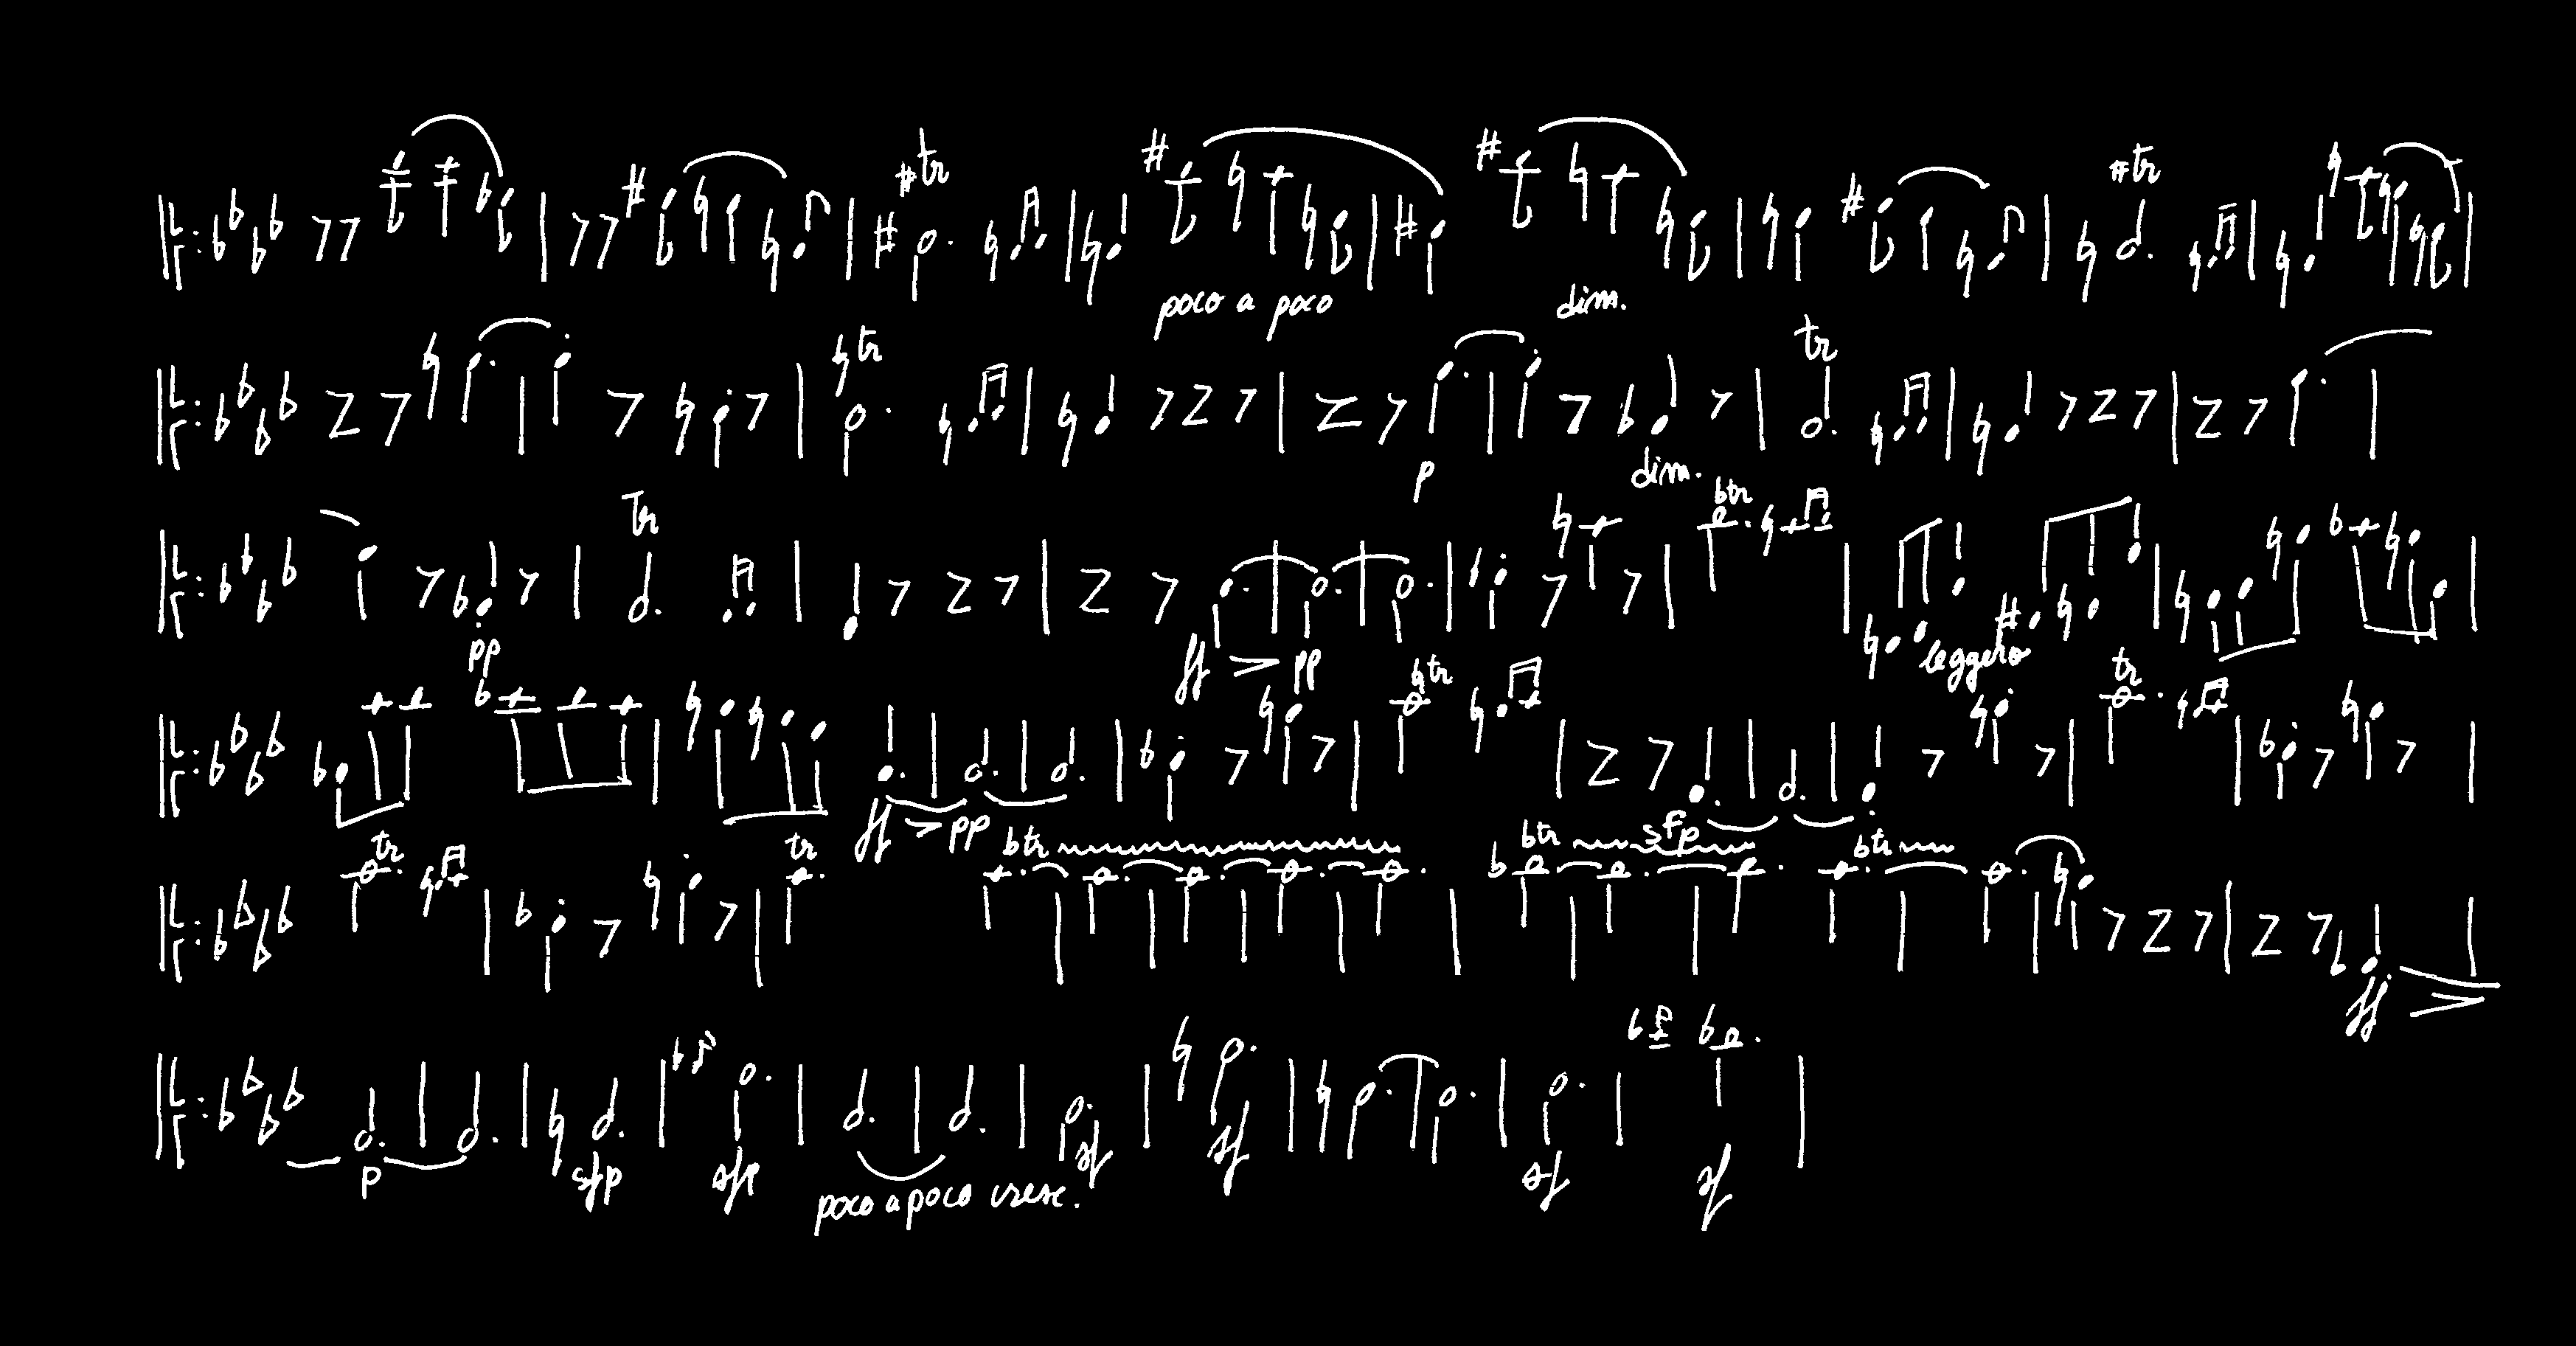 tr tr
poco a poco dim.
tr tr
p dim.
tr btr
pp ff pp leggero
tr tr
ff pp sfp
tr tr btr btr btr
ff
p sfp sfp poco a poco cresc. sf sf sf sf